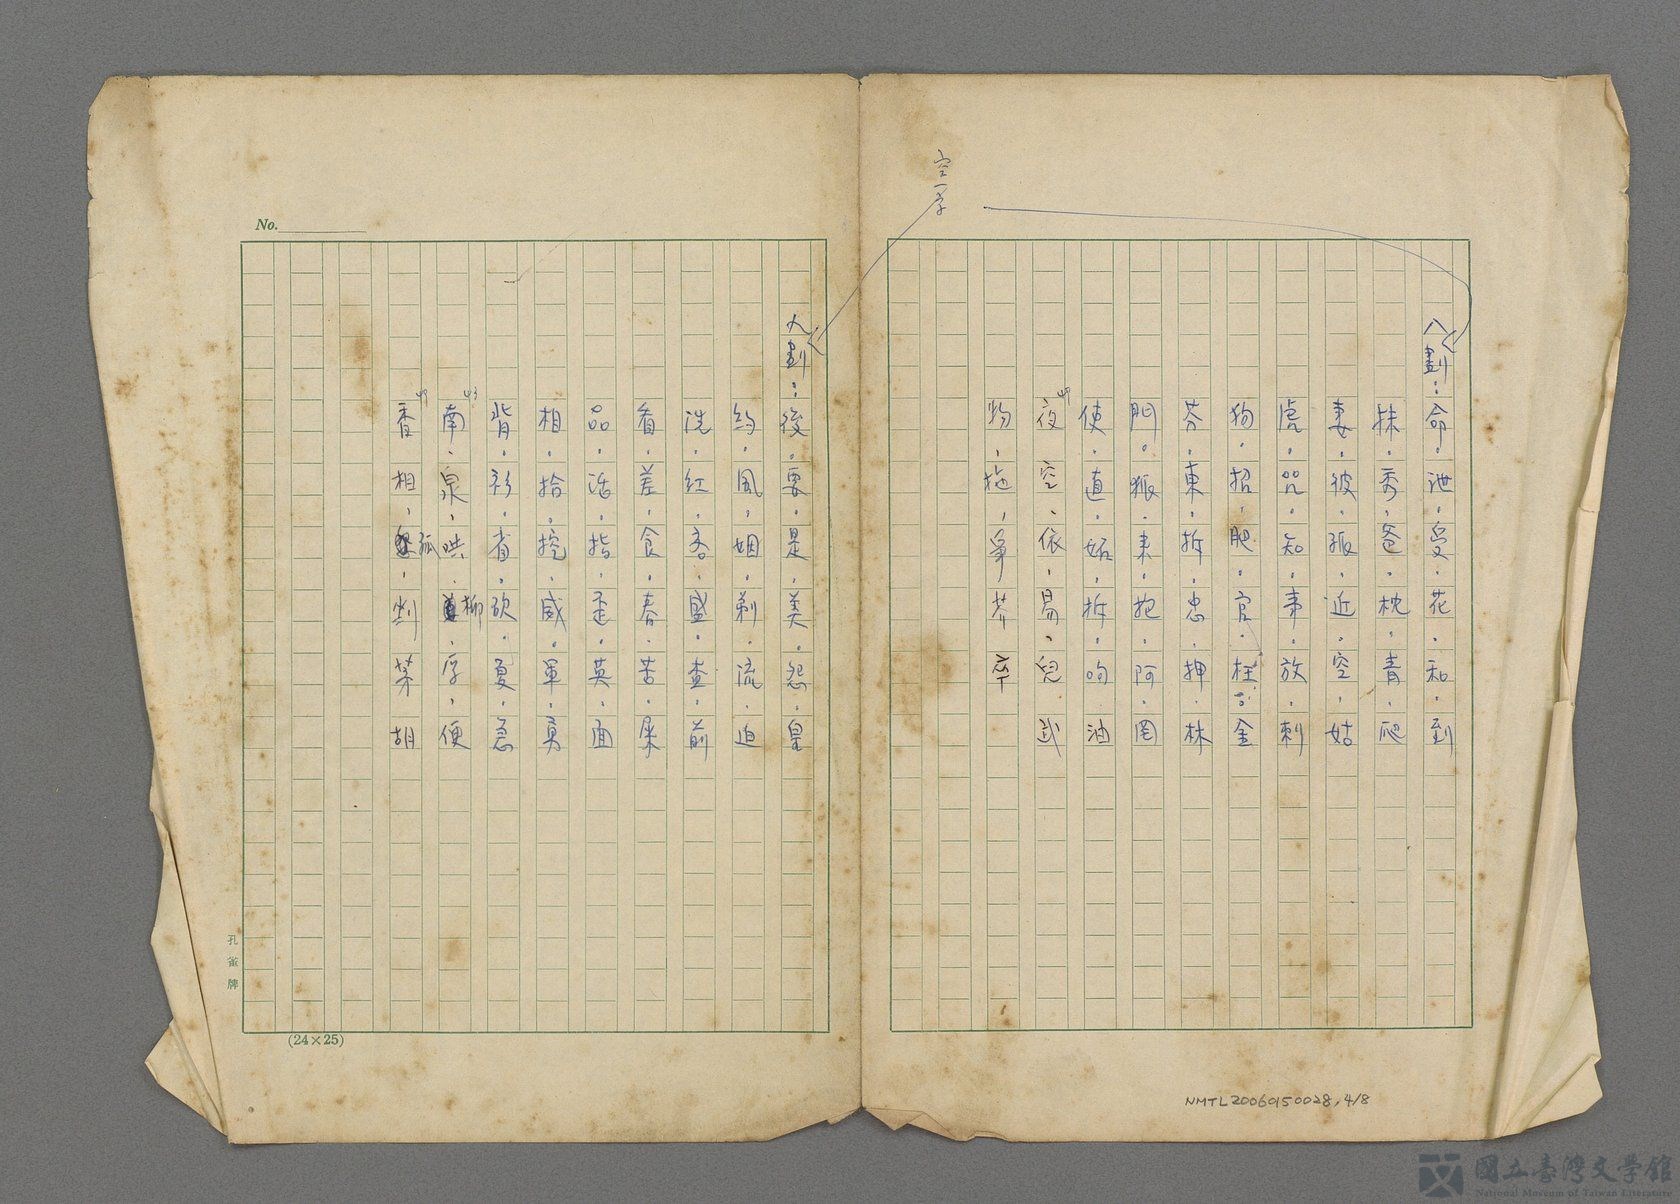 空一字
八劃：命．泄．受．花．和．到
抹．秀．爸．枕．青．爬
妻．彼．孤．近．空．姑
虎．咒．知．事．放．刺
狗．招．肥．官．枉．金
芬．東．拆．忠．押．林
門．狐．束．抱．阿．罔
使．直．妬．拆．呴 油
夜 空．依．易．兒 武
物．拖．爭 芥 卒
九劃：後．要．是．美．怨．皇
約．風．姻．剃．流．迫
洗．紅．香．盛．查．前
看．差．食．春．苦．屎
品．活．指．歪．英．面
相．拾．挖．威．軍．勇
背．衫．省．砍．夏．急
南．泉．哄．柳．厚．便
香 相．孤．剉 茶 胡
No.
孔雀牌
(24×25)
NMTL20060150028,4/8
國立臺灣文學館
National Museum of Taiwan Literature